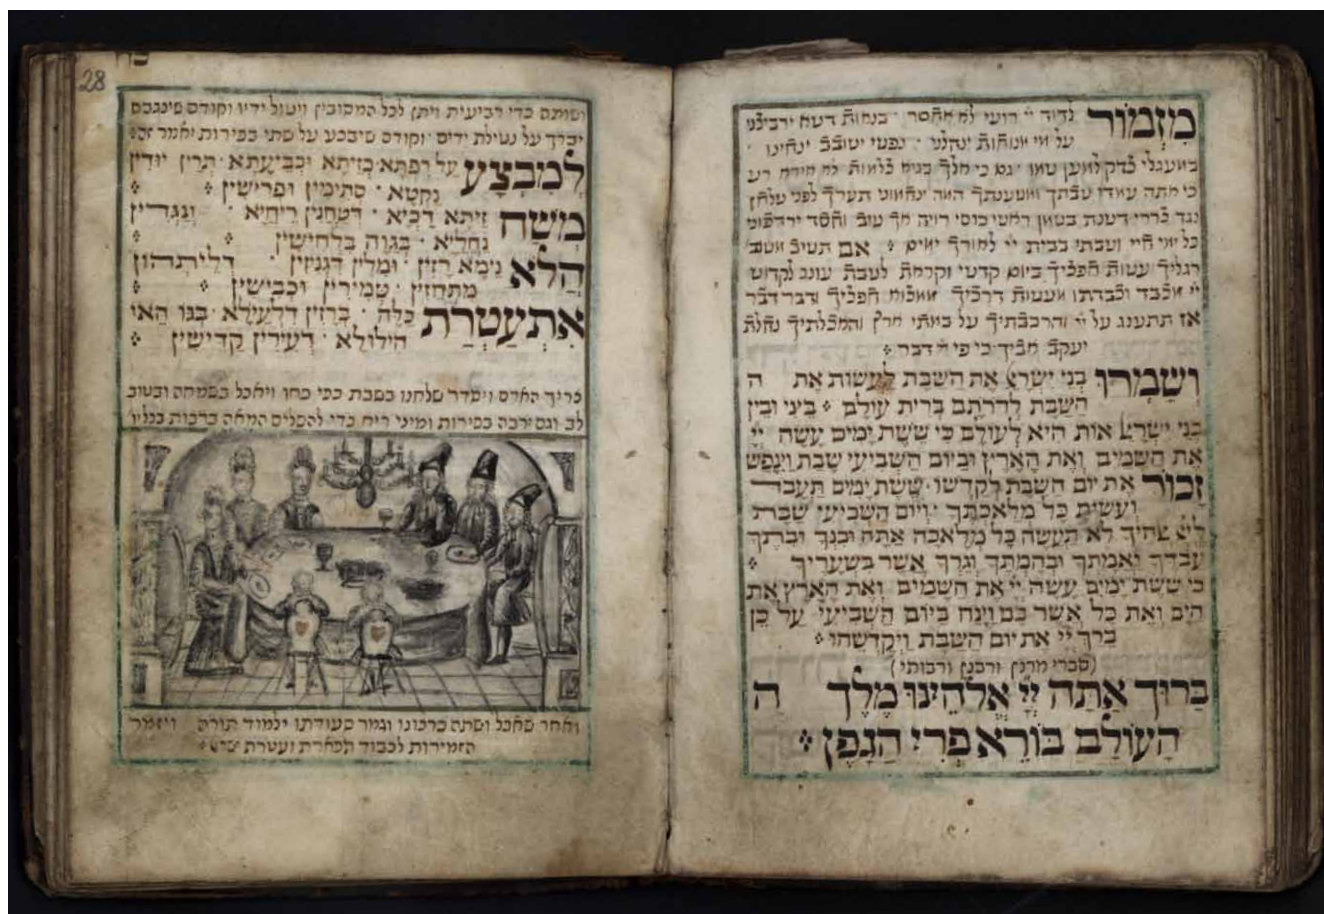 מִזְמוֹר לדוד יי רועי לא אחסר · בנאות דשא ירביצני
על מי מנוחות ינהלני · נפשי ישובב ינחני ·
במעגלי צדק למען שמו · גם כי אלך בגיא צלמות לא אירא רע
כי אתה עמדי שבטך ומשענתך המה ינחמוני תערך לפני שלחן
נגד צררי דשנת בשמן ראשי כוסי רויה אך טוב וחסד ירדפוני
כל ימי חיי ושבתי בבית יי לאורך ימים : אם תשיב משבת
רגליך עשות חפציך ביום קדשי וקראת לשבת עונג לקדוש
יי מכבד וכבדתו מעשות דרכיך ממצוא חפציך ודבר דבר
אז תתענג על יי והרכבתיך על במתי ארץ והאכלתיך נחלת
יעקב אביך כי פי יי דבר :
וְשָׁמְרוּ בְנֵי יִשְׂרָאֵל אֶת הַשַׁבָּת לַעֲשׂוֹת אֶת ה
הַשַׁבָּת לְדֹרֹתָם בְּרִית עוֹלָם : בֵּינִי וּבֵין
בְּנֵי יִשְׂרָאֵל אוֹת הִיא לְעוֹלָם כִּי שֵׁשֶׁת יָמִים עָשָׂה יְיָ
אֶת הַשָׁמַיִם וְאֶת הָאָרֶץ וּבַיוֹם הַשְׁבִיעִי שָׁבַת וַיִנָפַשׁ
זָכוֹר אֶת יוֹם הַשַׁבָּת לְקַדְשׁוֹ · שֵׁשֶׁת יָמִים תַּעֲבֹד
וְעָשִׂיתָ כָּל מְלַאכְתֶּךָ · וְיוֹם הַשְׁבִיעִי שַׁבָּת
לַיְיָ אֱלֹהֶיךָ לֹא תַעֲשֶׂה כָל מְלָאכָה אַתָּה וּבִנְךָ וּבִתֶּךָ
עַבְדְךָ וַאֲמָתְךָ וּבְהֶמְתֶּךָ וְגֵרְךָ אֲשֶׁר בִּשְׁעָרֶיךָ :
כִּי שֵׁשֶׁת יָמִים עָשָׂה יְיָ אֶת הַשָׁמַיִם וְאֶת הָאָרֶץ אֶת
הַיָם וְאֶת כָּל אֲשֶׁר בָּם וַיָנַח בַּיוֹם הַשְׁבִיעִי עַל כֵּן
בֵּרַךְ יְיָ אֶת יוֹם הַשַׁבָּת וַיְקַדְשֵׁהוּ :
(סברי מרנן ורבנן ורבותי)
בָּרוּךְ אַתָּה יְיָ אֱלֹהֵינוּ מֶלֶךְ ה
הָעוֹלָם בּוֹרֵא פְּרִי הַגָפֶן :
28
ושותם כדי רביעית ויתן לכל המסובין ויטול ידיו וקודם שינגבם
יברך על נטילת ידים · וקודם שיבצע על שתי כפירות יאמר זה :
לְמִבְצַע עַל רִפְתָּא כְּזֵיתָא וּכְבֵיעֲתָא · תְּרֵין יוּדִין
נָקְטָא · סְתִימִין וּפְרִישִׁין :
מְשַׁח זֵיתָא דַּכְיָא · דְּטַחֲנִין רֵיחַיָא · וְנַגְדִין
נַחֲלַיָא · בְּגַוָהּ בִּלְחִישִׁין :
הֲלֹא נֵימָא רָזִין · וּמִלִין דִּגְנִיזִין · דְּלֵיתְהוֹן
מִתְחַזִין · טְמִירִין וּכְבִישִׁין :
אִתְעַטְרַת כַּלָה · בְּרָזִין דִּלְעֵילָא · בְּגוֹ הַאי
הִילוּלָא · דְעִירִין קַדִישִׁין :
צריך האדם ויסדר שלחנו בשבת כפי כחו ויאכל בשמחה ובטוב
לב וגם ירבה בפירות ומיני ריח כדי להשלים המאה ברכות
ואחר שאכל ושתה כרצונו וגמר סעודתו ילמוד תורה ויזמר
הזמירות לכבוד תפארת ועטרת